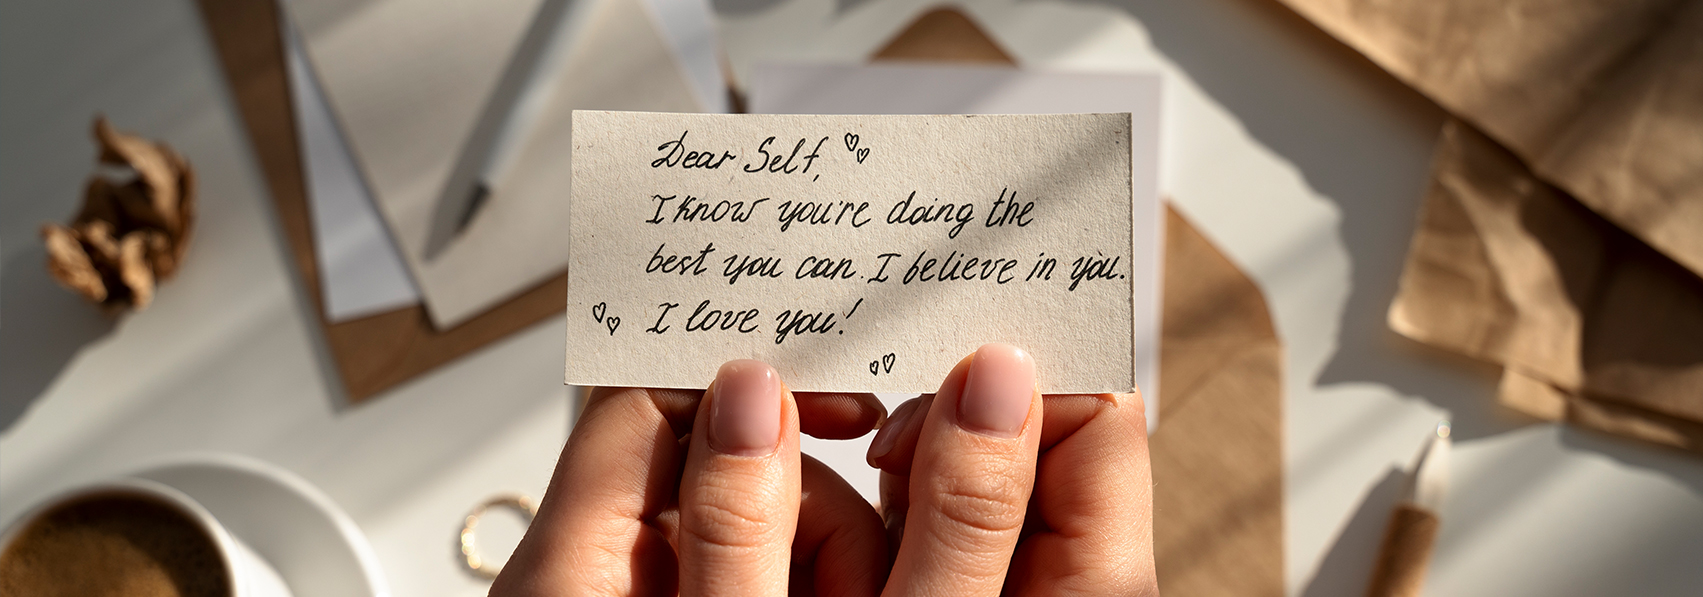 Dear Self,
I know you're doing the
best you can. I believe in you.
I love you!